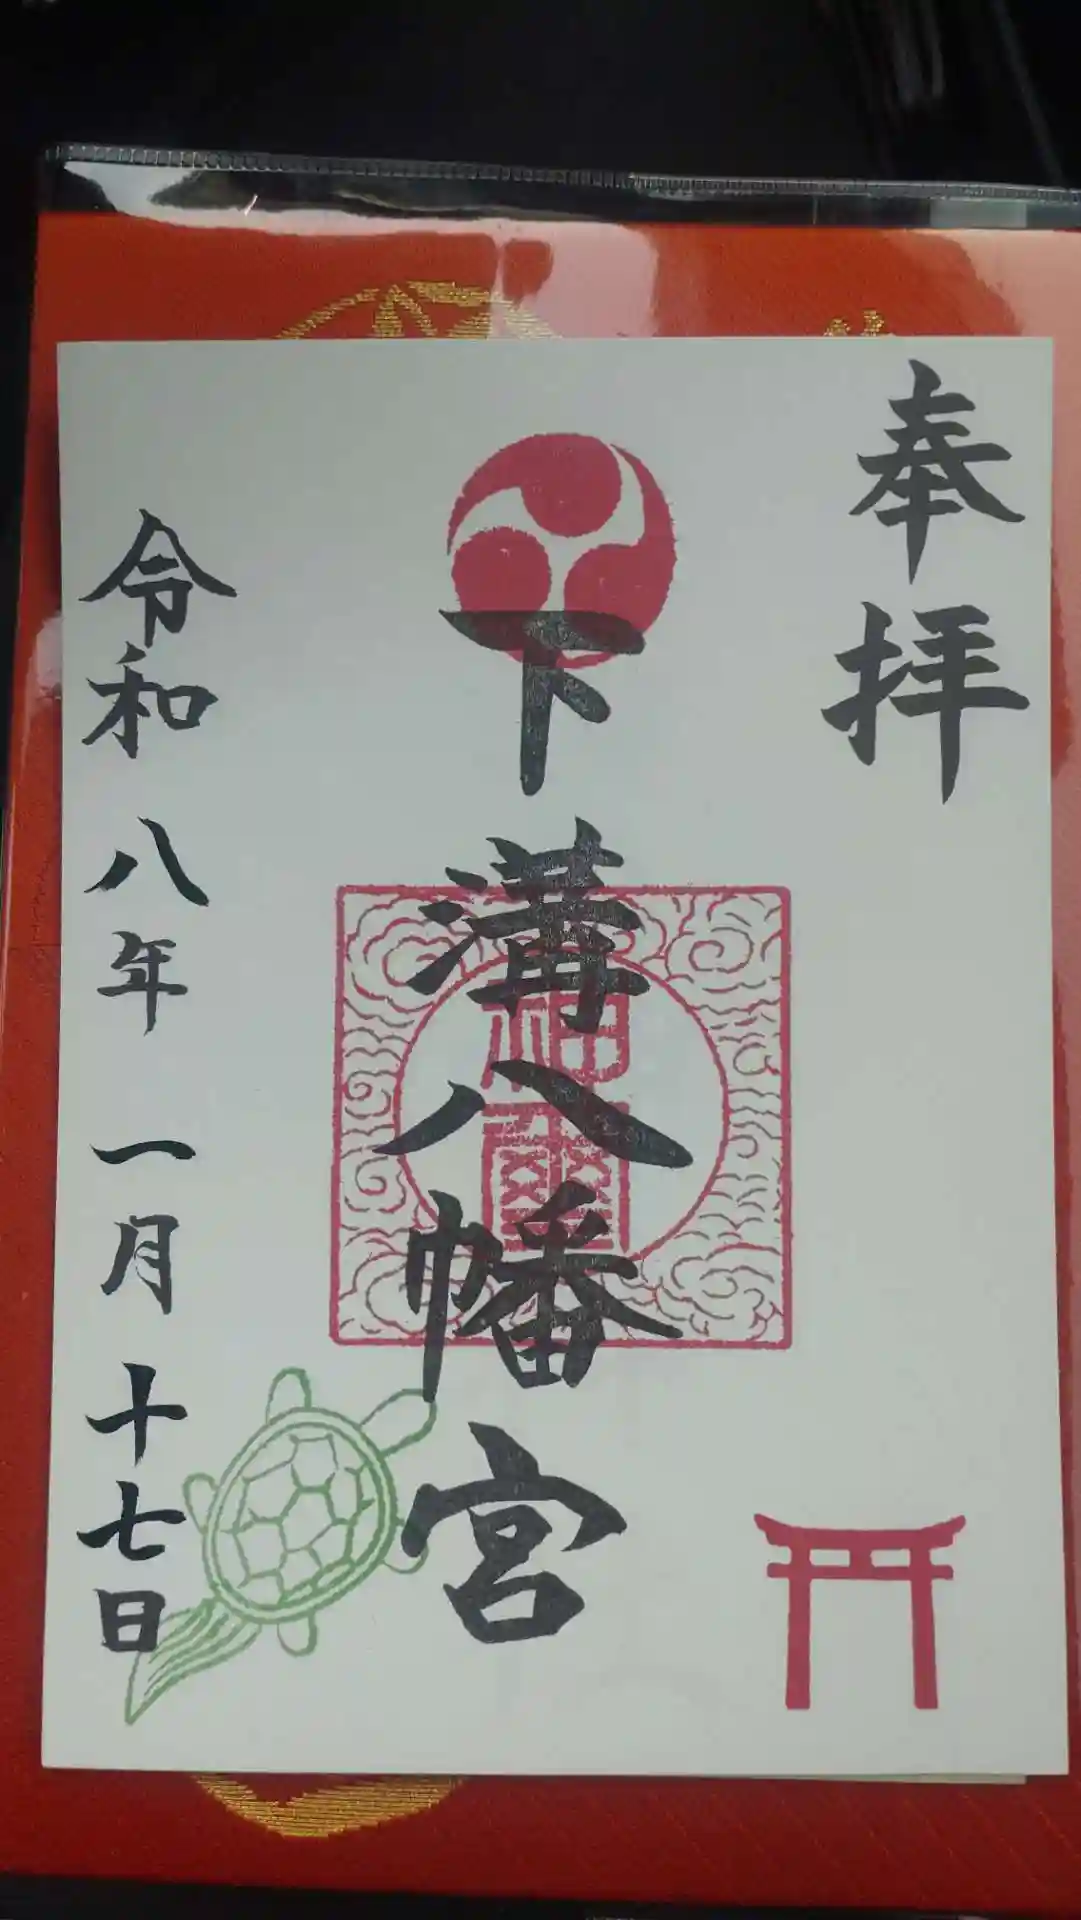 奉拝
下溝八幡宮
神璽
令和八年一月十七日